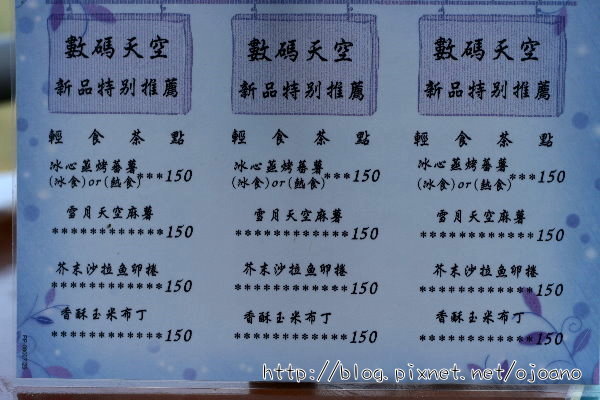 數碼天空
新品特別推薦
輕食茶點
冰心蒸烤蕃薯
(冰食)or(熱食)***150
雪月天空麻薯
************150
芥末沙拉魚卵捲
************150
香酥玉米布丁
************150
數碼天空
新品特別推薦
輕食茶點
冰心蒸烤蕃薯
(冰食)or(熱食)***150
雪月天空麻薯
************150
芥末沙拉魚卵捲
************150
香酥玉米布丁
************150
數碼天空
新品特別推薦
輕食茶點
冰心蒸烤蕃薯
(冰食)or(熱食)***150
雪月天空麻薯
************150
芥末沙拉魚卵捲
************150
香酥玉米布丁
************150
http://blog.pixnet.net/ojoano